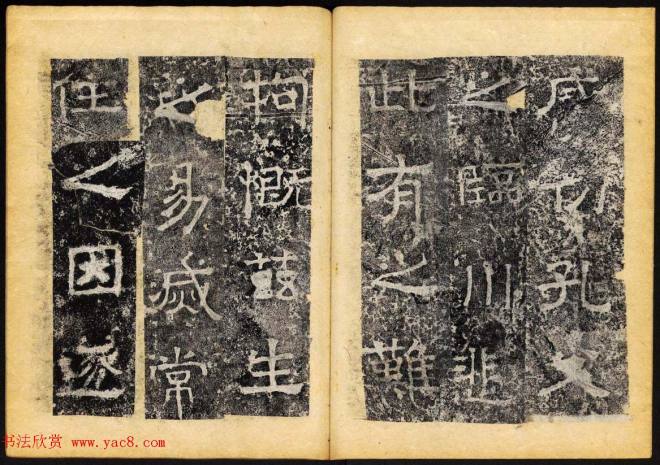 孔父
之臨川悲
此有之難
拘慨茲生
之易滅常
住之因遂
书法欣赏 www.yac8.com